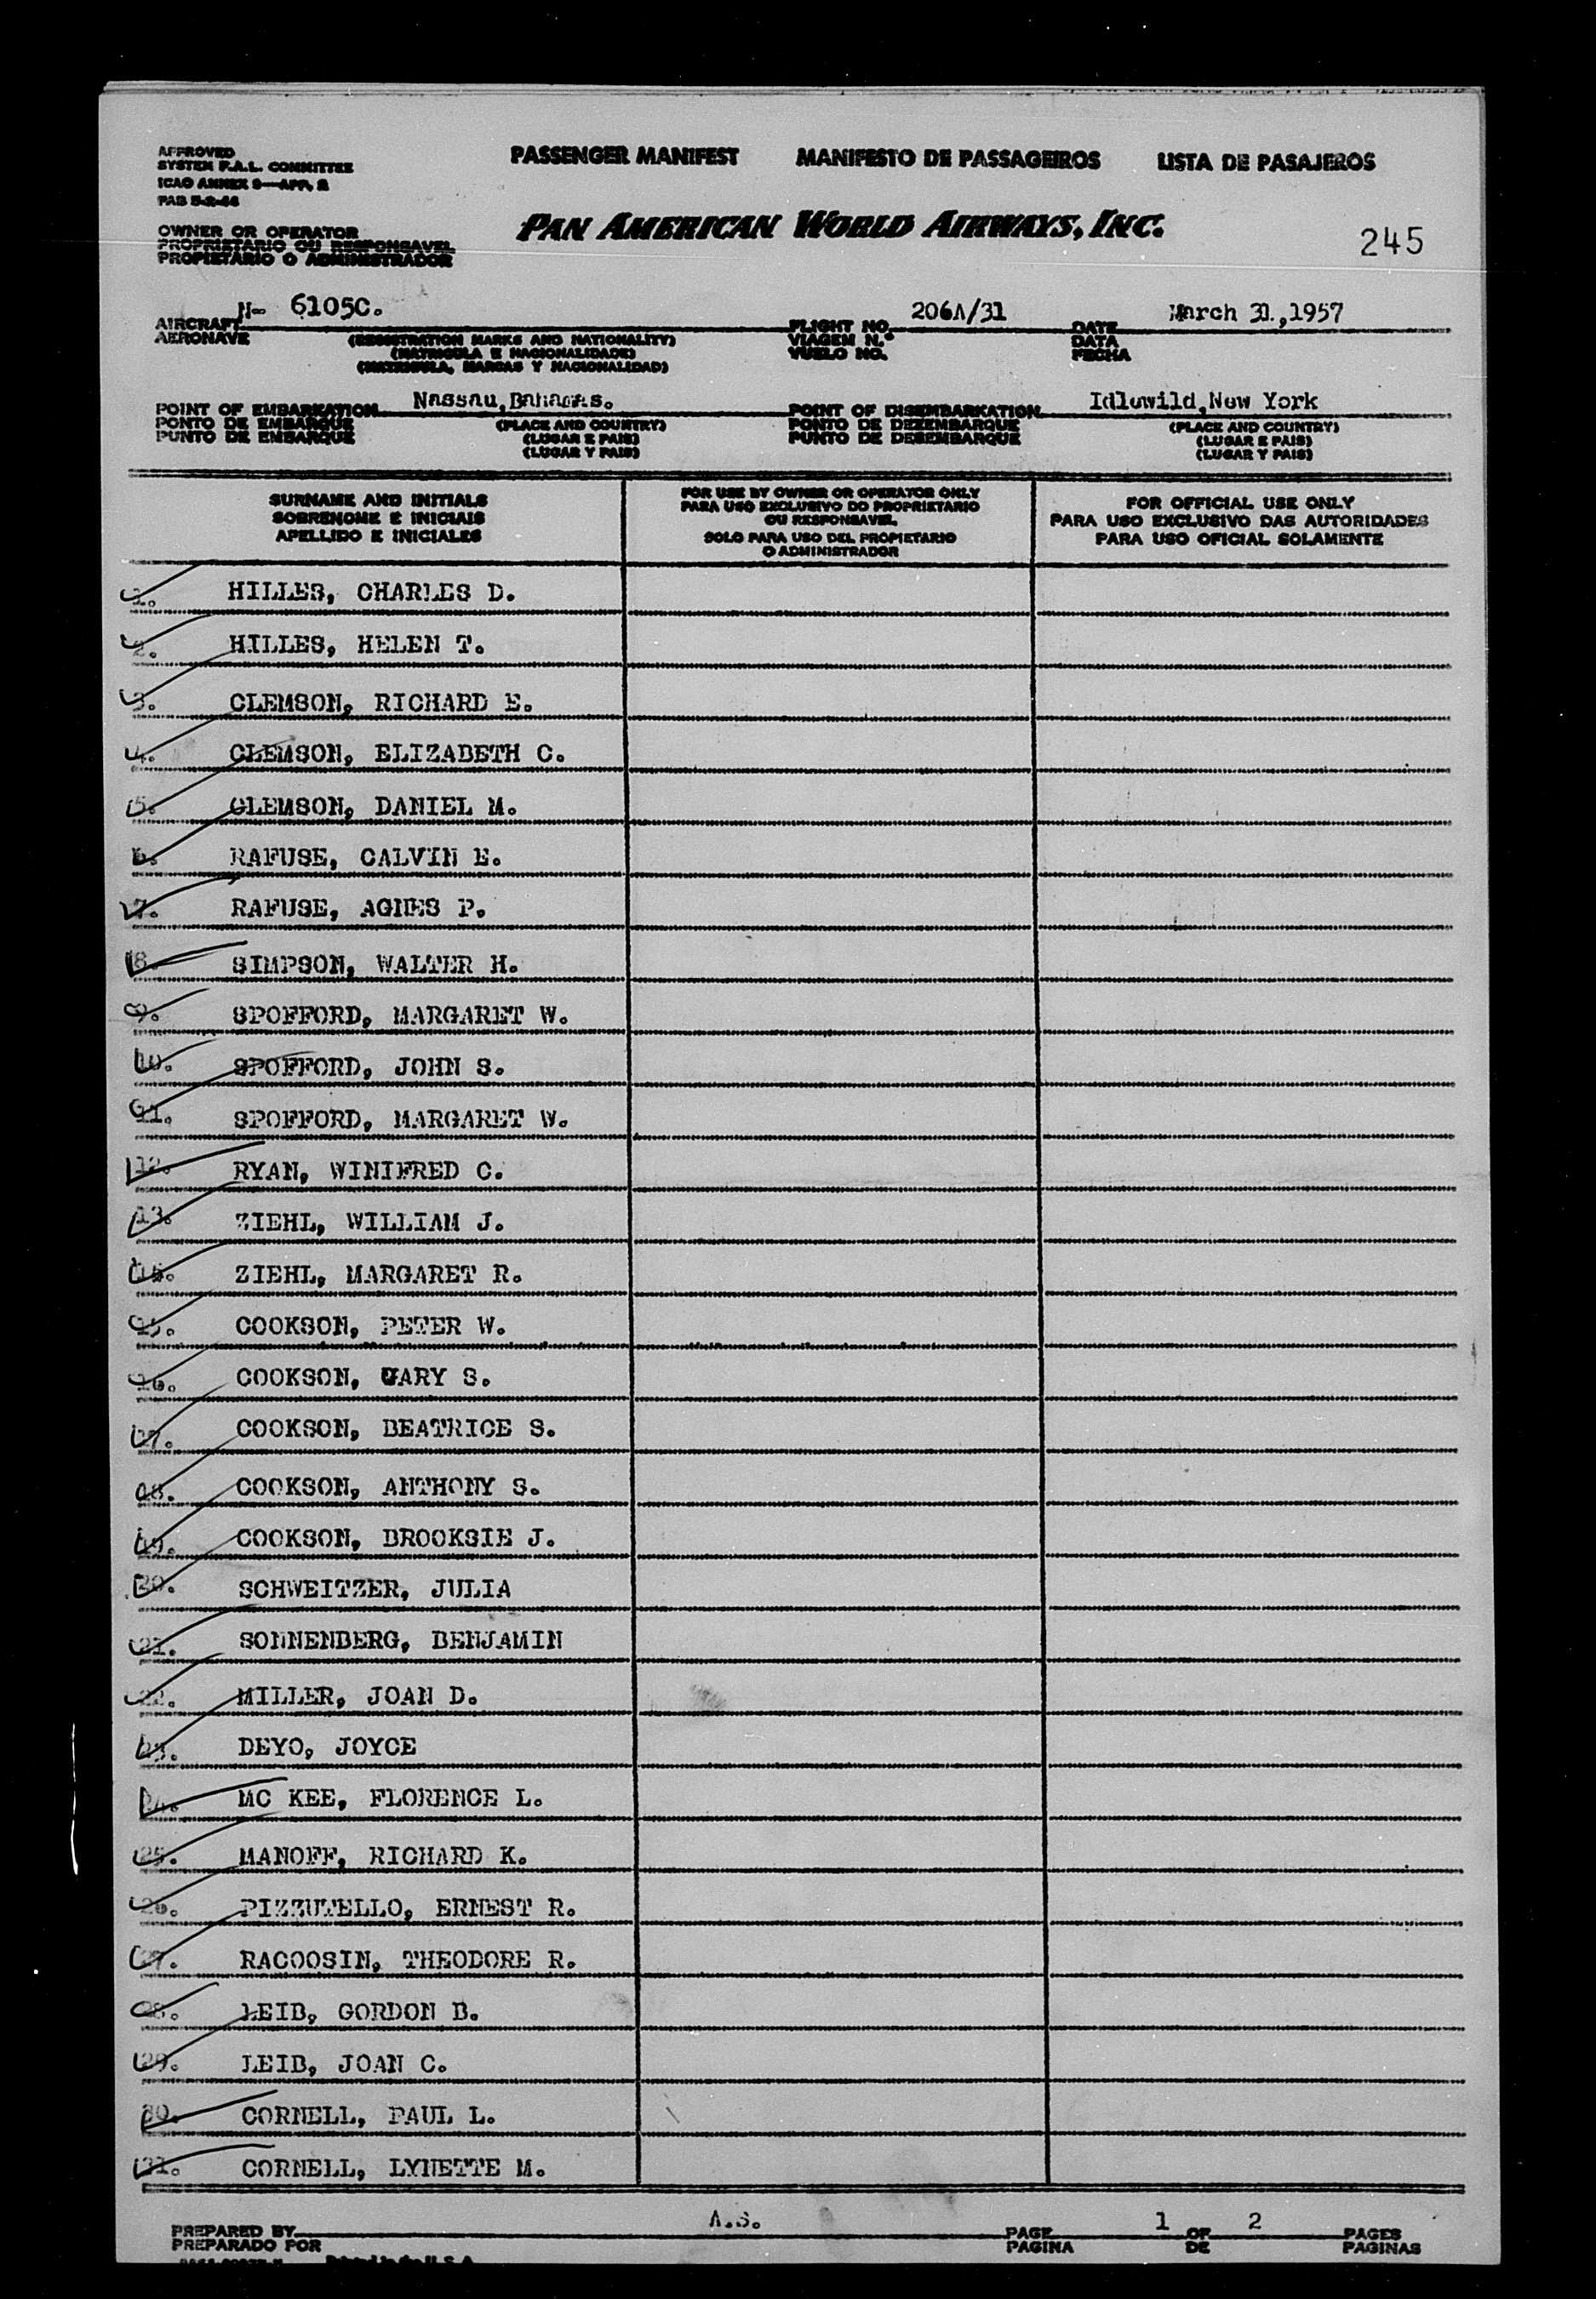 APPROVED
SYSTEM F.A.L. COMMITTEE
ICAO ANNEX 9—APP. 2
PAB 5-2-46
PASSENGER MANIFEST MANIFESTO DE PASSAGEIROS LISTA DE PASAJEROS
PAN AMERICAN WORLD AIRWAYS, INC.
OWNER OR OPERATOR
PROPRIETARIO OU RESPONSAVEL
PROPIETARIO O ADMINISTRADOR
245
AIRCRAFT N- 6105C. FLIGHT NO. 206A/31 DATE March 31,1957
AERONAVE (REGISTRATION MARKS AND NATIONALITY) VIAGEM N.º DATA
(MATRICULA E NACIONALIDADE) VUELO NO. FECHA
(MATRICULA, MARCAS Y NACIONALIDAD)
POINT OF EMBARKATION Nassau,Bahamas. POINT OF DISEMBARKATION Idlewild,New York
PONTO DE EMBARQUE (PLACE AND COUNTRY) PONTO DE DEZEMBARQUE (PLACE AND COUNTRY)
PUNTO DE EMBARQUE (LUGAR E PAIS) PUNTO DE DESEMBARQUE (LUGAR E PAIS)
(LUGAR Y PAIS) (LUGAR Y PAIS)
SURNAME AND INITIALS
SOBRENOME E INICIAIS
APELLIDO E INICIALES
FOR USE BY OWNER OR OPERATOR ONLY
PARA USO EXCLUSIVO DO PROPRIETARIO
OU RESPONSAVEL.
SOLO PARA USO DEL PROPIETARIO
O ADMINISTRADOR
FOR OFFICIAL USE ONLY
PARA USO EXCLUSIVO DAS AUTORIDADES
PARA USO OFICIAL SOLAMENTE
1. HILLES, CHARLES D.
2. HILLES, HELEN T.
3. CLEMSON, RICHARD E.
4. CLEMSON, ELIZABETH C.
5. CLEMSON, DANIEL M.
6. RAFUSE, CALVIN E.
7. RAFUSE, AGNES P.
8. SIMPSON, WALTER H.
9. SPOFFORD, MARGARET W.
10. SPOFFORD, JOHN S.
11. SPOFFORD, MARGARET W.
12. RYAN, WINIFRED C.
13. ZIEHL, WILLIAM J.
14. ZIEHL, MARGARET R.
15. COOKSON, PETER W.
16. COOKSON, GARY S.
17. COOKSON, BEATRICE S.
18. COOKSON, ANTHONY S.
19. COOKSON, BROOKSIE J.
20. SCHWEITZER, JULIA
21. SONNENBERG, BENJAMIN
22. MILLER, JOAN D.
23. DEYO, JOYCE
24. MC KEE, FLORENCE L.
25. MANOFF, RICHARD K.
26. PIZZUTELLO, ERNEST R.
27. RACOOSIN, THEODORE R.
28. LEIB, GORDON B.
29. LEIB, JOAN C.
30. CORNELL, PAUL L.
31. CORNELL, LYNETTE M.
PREPARED BY A.S. PAGE 1 OF 2 PAGES
PREPARADO POR PAGINA DE PAGINAS
Printed in the U.S.A.